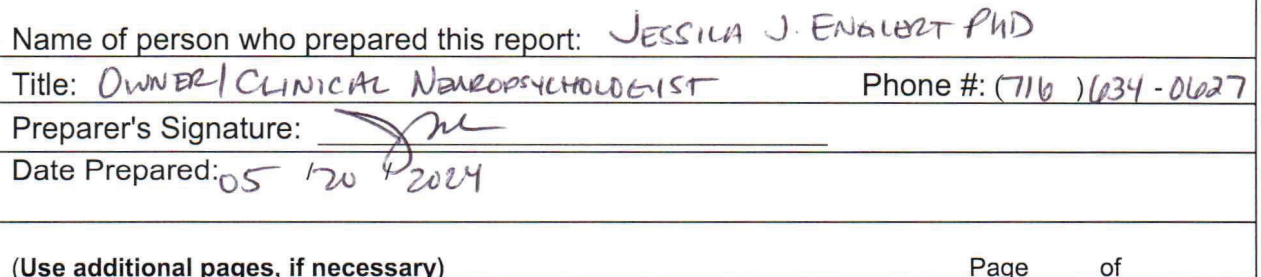 Name of person who prepared this report: JESSICA J. ENGLERT PHD
Title: OWNER/CLINICAL NEUROPSYCHOLOGIST Phone #: (716 )634-0627
Preparer's Signature:
Date Prepared: 05 /20 /2024
(Use additional pages, if necessary) Page of